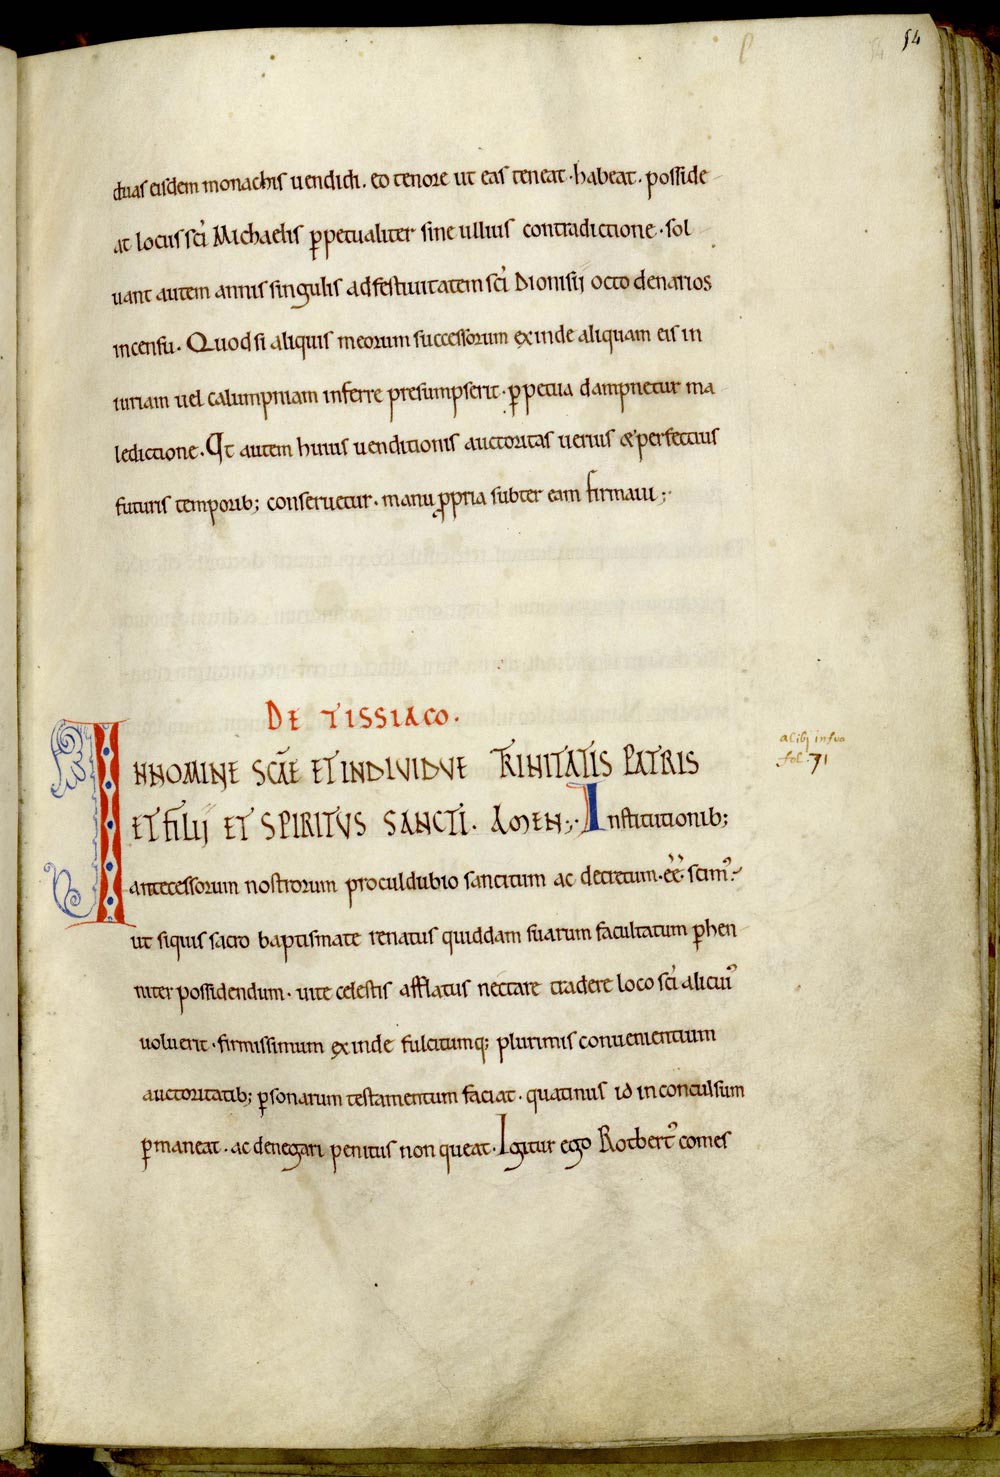 54
duas eisdem monachis uendidi. eo tenore ut eas teneat · habeat . posside
at locus sc̄i Michaelis ꝑpetualiter sine ullius contradictione · sol
uant autem annis singulis ad festiuitatem sc̄i Dionisij octo denarios
incensu. Quod si aliquis meorum successorum exinde aliquam eis in
iuriam uel calumpniam inferre presumpserit · ꝑpetua dampnetur ma
ledictione. Ut autem huius uenditionis auctoritas uerius & perfectius
futuris temporib; conseruetur . manu ꝓpria subter eam firmaui;
DE TISSIACO.
INNOMINE SCĀE ET INDIVIDVE TRINITATIS PATRIS
ET FILIJ ET SPIRITVS SANCTI. AMEN; Institutionib;
alibj infra
fol. 71
antecessorum nostrorum proculdubio sancitum ac decretum · ēē scimꝰ
ut siquis sacro baptismate renatus quiddam suarum facultatum ꝑhen
niter possidendum · uite celestis afflatus nectare tradere loco sc̄i alicuiꝰ
uoluerit · firmissimum exinde fulcitumq; plurimis conuenientium
auctoritatib; ꝑsonarum testamentum faciat · quatinus id inconculsum
ꝑmaneat . ac denegari penitus non queat. Igitur ego Rotbertꝰ comes